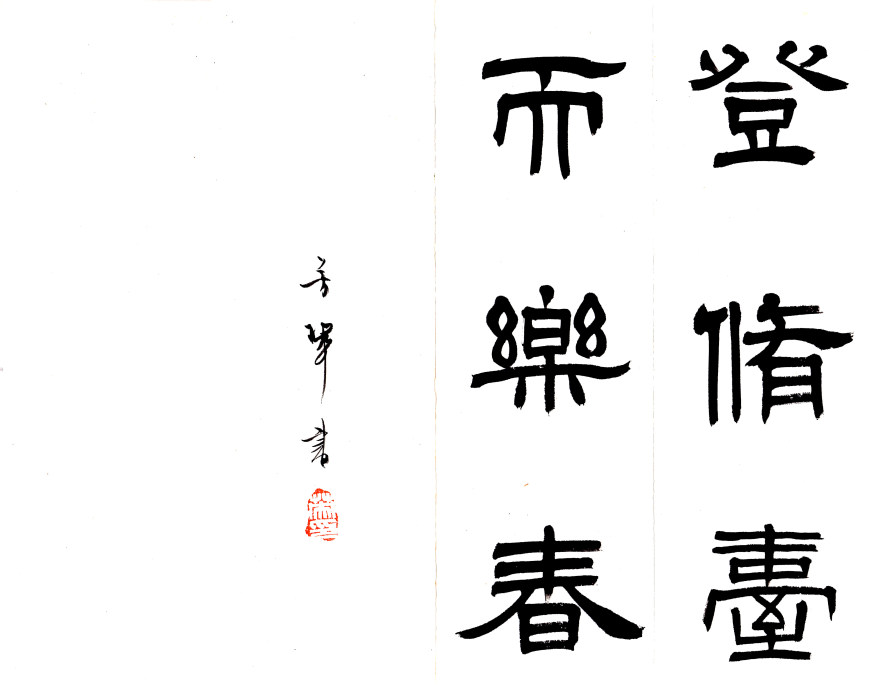 登脩臺
而樂春
書